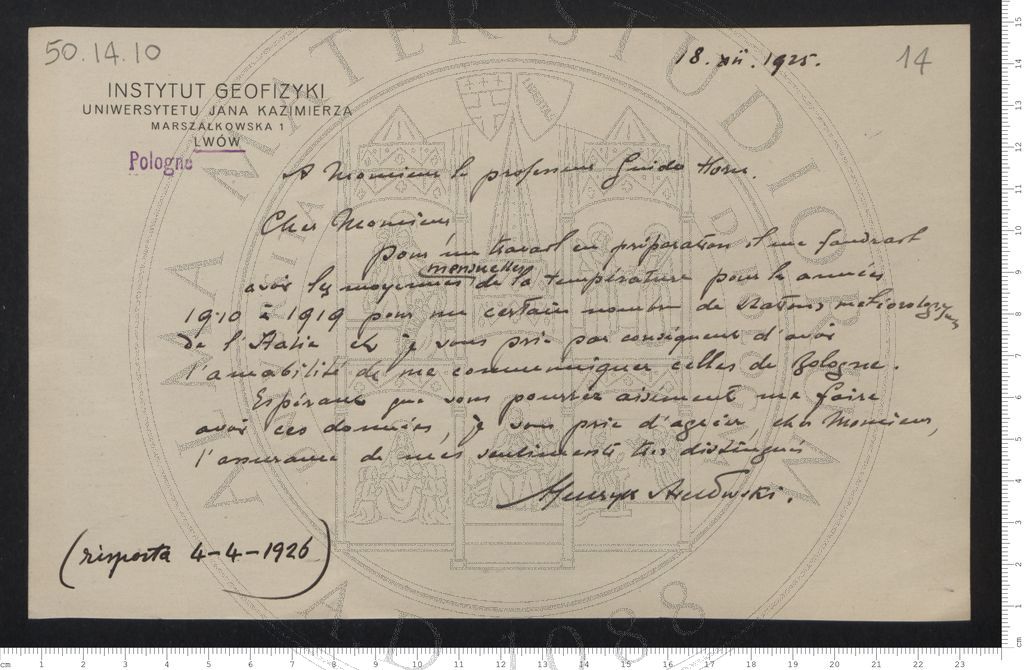 50.14.10
18. XII. 1925.
14
INSTYTUT GEOFIZYKI
UNIWERSYTETU JANA KAZIMIERZA
MARSZAŁKOWSKA 1
LWÓW
Pologne
A Monsieur le professeur Guido Horn.
Cher Monsieur
pour un travail en préparation il me faudrait
avoir les moyennes mensuelles de la température pour les années
1910 à 1919 pour un certain nombre de stations météorologiques
de l'Italie et je vous prie par conséquent d'avoir
l'amabilité de me communiquer celles de Bologne.
Espérant que vous pourrez aisement me faire
avoir ces données, je vous prie d'agréer, cher Monsieur,
l'assurance de mes sentiments très distingués
Henryk Arctowski.
(risposta 4-4-1926)
ALMA MATER STUDIORUM
A.D. 1088
cm 1 2 3 4 5 6 7 8 9 10 11 12 13 14 15 16 17 18 19 20 21 22 23
15
14
13
12
11
10
9
8
7
6
5
4
3
2
1
cm